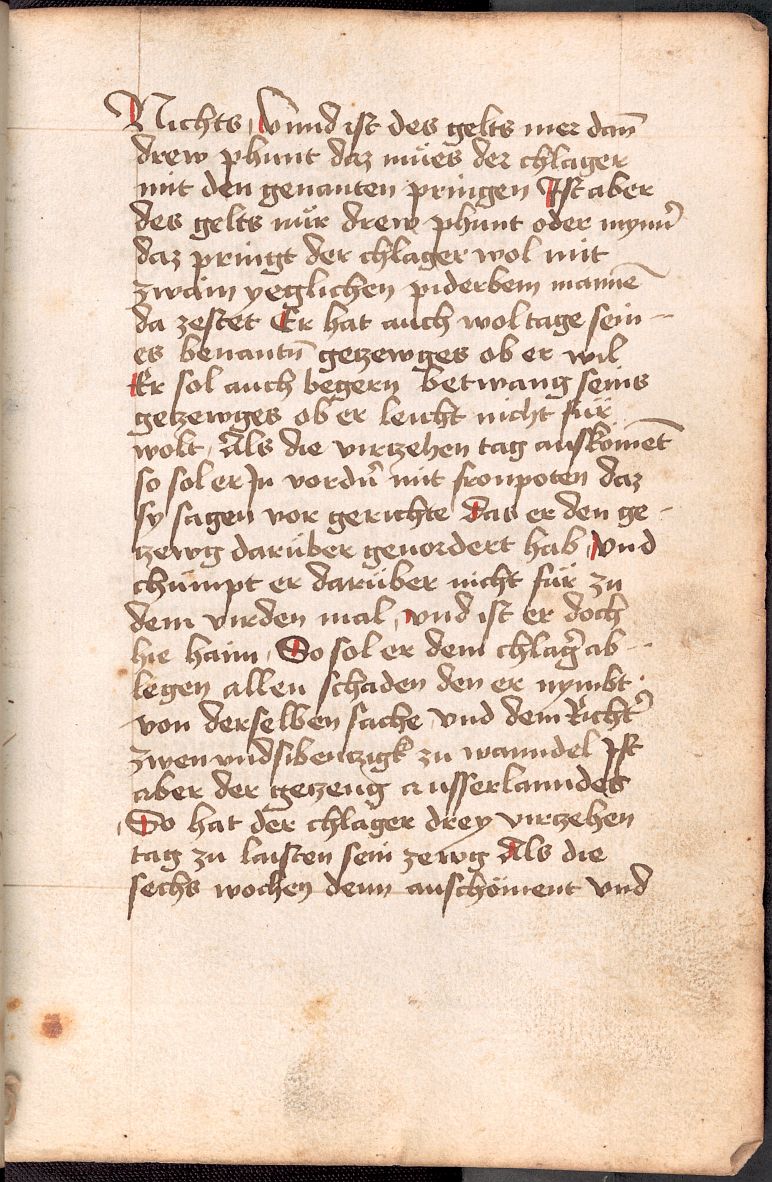 Nichts, Vnnd ist des gelts mer dan̄
drew phunt daz mües der chlager
mit den genanten pringen Ist aber
des gelts nür drew phunt oder mynn̉
daz pringt der chlager wol mit
zwain yeglichen piderbem manne
da zestet Er hat auch wol tage sein -
es benantn̄ getzewges ob er wil
Er sol auch begern betwang seins
getzewges ob er leicht nicht für
wolt, Als die virtzehen tag auskōment
so sol er In vordn̉ mit fronpoten daz
sy sagen vor gerichte Das er den ge -
tzewg darüber geuordert hab, vnd
chümpt er darüber nicht für zu
dem virden mal, vnd ist er doch
hie haim, So sol er dem chlag̉ ab -
legen allen schaden den er nymbt
von derselben sache vnd dem Richt̉
zwen vndsibentzigk zu wanndel Ist
aber der getzeug ausserlanndes
So hat der chlager drey virtzehen
tag zu laisten sein zewg Als die
sechs wochen denn auschöment vnd